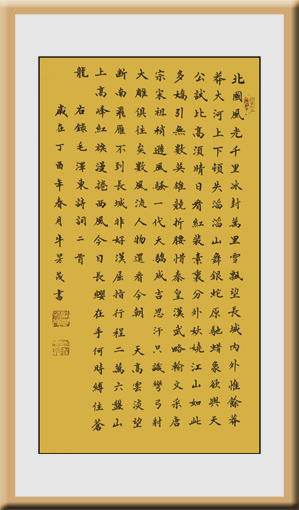 北國風光千里冰封萬里雪飄望長城內外惟餘莽
莽大河上下頓失滔滔山舞銀蛇原馳蠟象欲與天
公試比高須晴日看紅裝素裹分外妖嬈江山如此
多嬌引無數英雄競折腰惜秦皇漢武略輸文采唐
宗宋祖稍遜風騷一代天驕成吉思汗只識彎弓射
大雕俱往矣數風流人物還看今朝 天高雲淡望
斷南飛雁不到長城非好漢屈指行程二萬六盤山
上高峰紅旗漫捲西風今日長纓在手何時縛住蒼
龍 右錄毛澤東詩詞二首
歲在丁酉年春月牛茂書